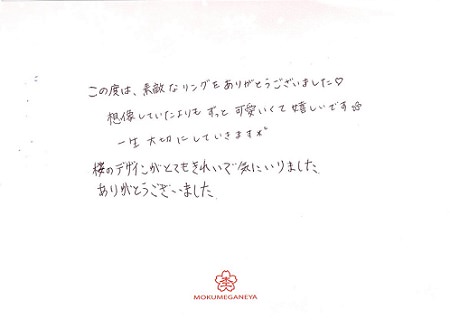 この度は、素敵なリングをありがとうございました♡
想像していたよりもずっと可愛いくて嬉しいです
一生大切にしていきます
桜のデザインがとてもきれいで気にいりました。
ありがとうございました。
MOKUMEGANEYA